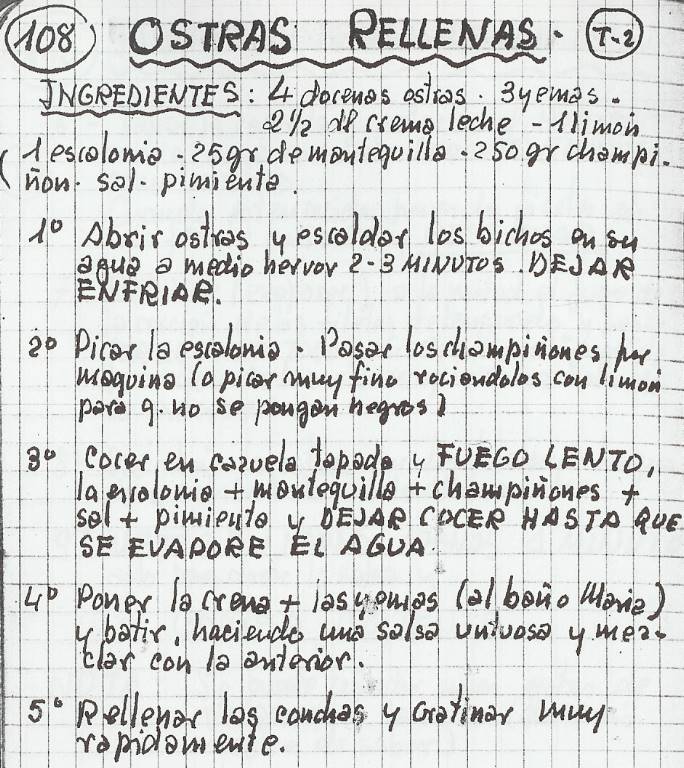 108 OSTRAS RELLENAS. T-2
INGREDIENTES: 4 docenas ostras. 3 yemas.
2½ dl crema leche - 1 limón
1 escalonia. 25gr de mantequilla. 250 gr champi-
ñon. sal. pimienta.
1º Abrir ostras y escaldar los bichos en su
agua a medio hervor 2-3 MINUTOS. DEJAR
ENFRIAR.
2º Picar la escalonia. Pasar los champiñones por
maquina (o picar muy fino rociandolos con limon
para q. no se pongan negros)
3º Cocer en cazuela tapada y FUEGO LENTO,
la escalonia + mantequilla + champiñones +
sal + pimienta y DEJAR COCER HASTA QUE
SE EVADORE EL AGUA
4º Poner la crema + las yemas (al baño Maria)
y batir, haciendo una salsa untuosa y mez-
clar con la anterior.
5º Rellenar las conchas y Gratinar muy
rapidamente.